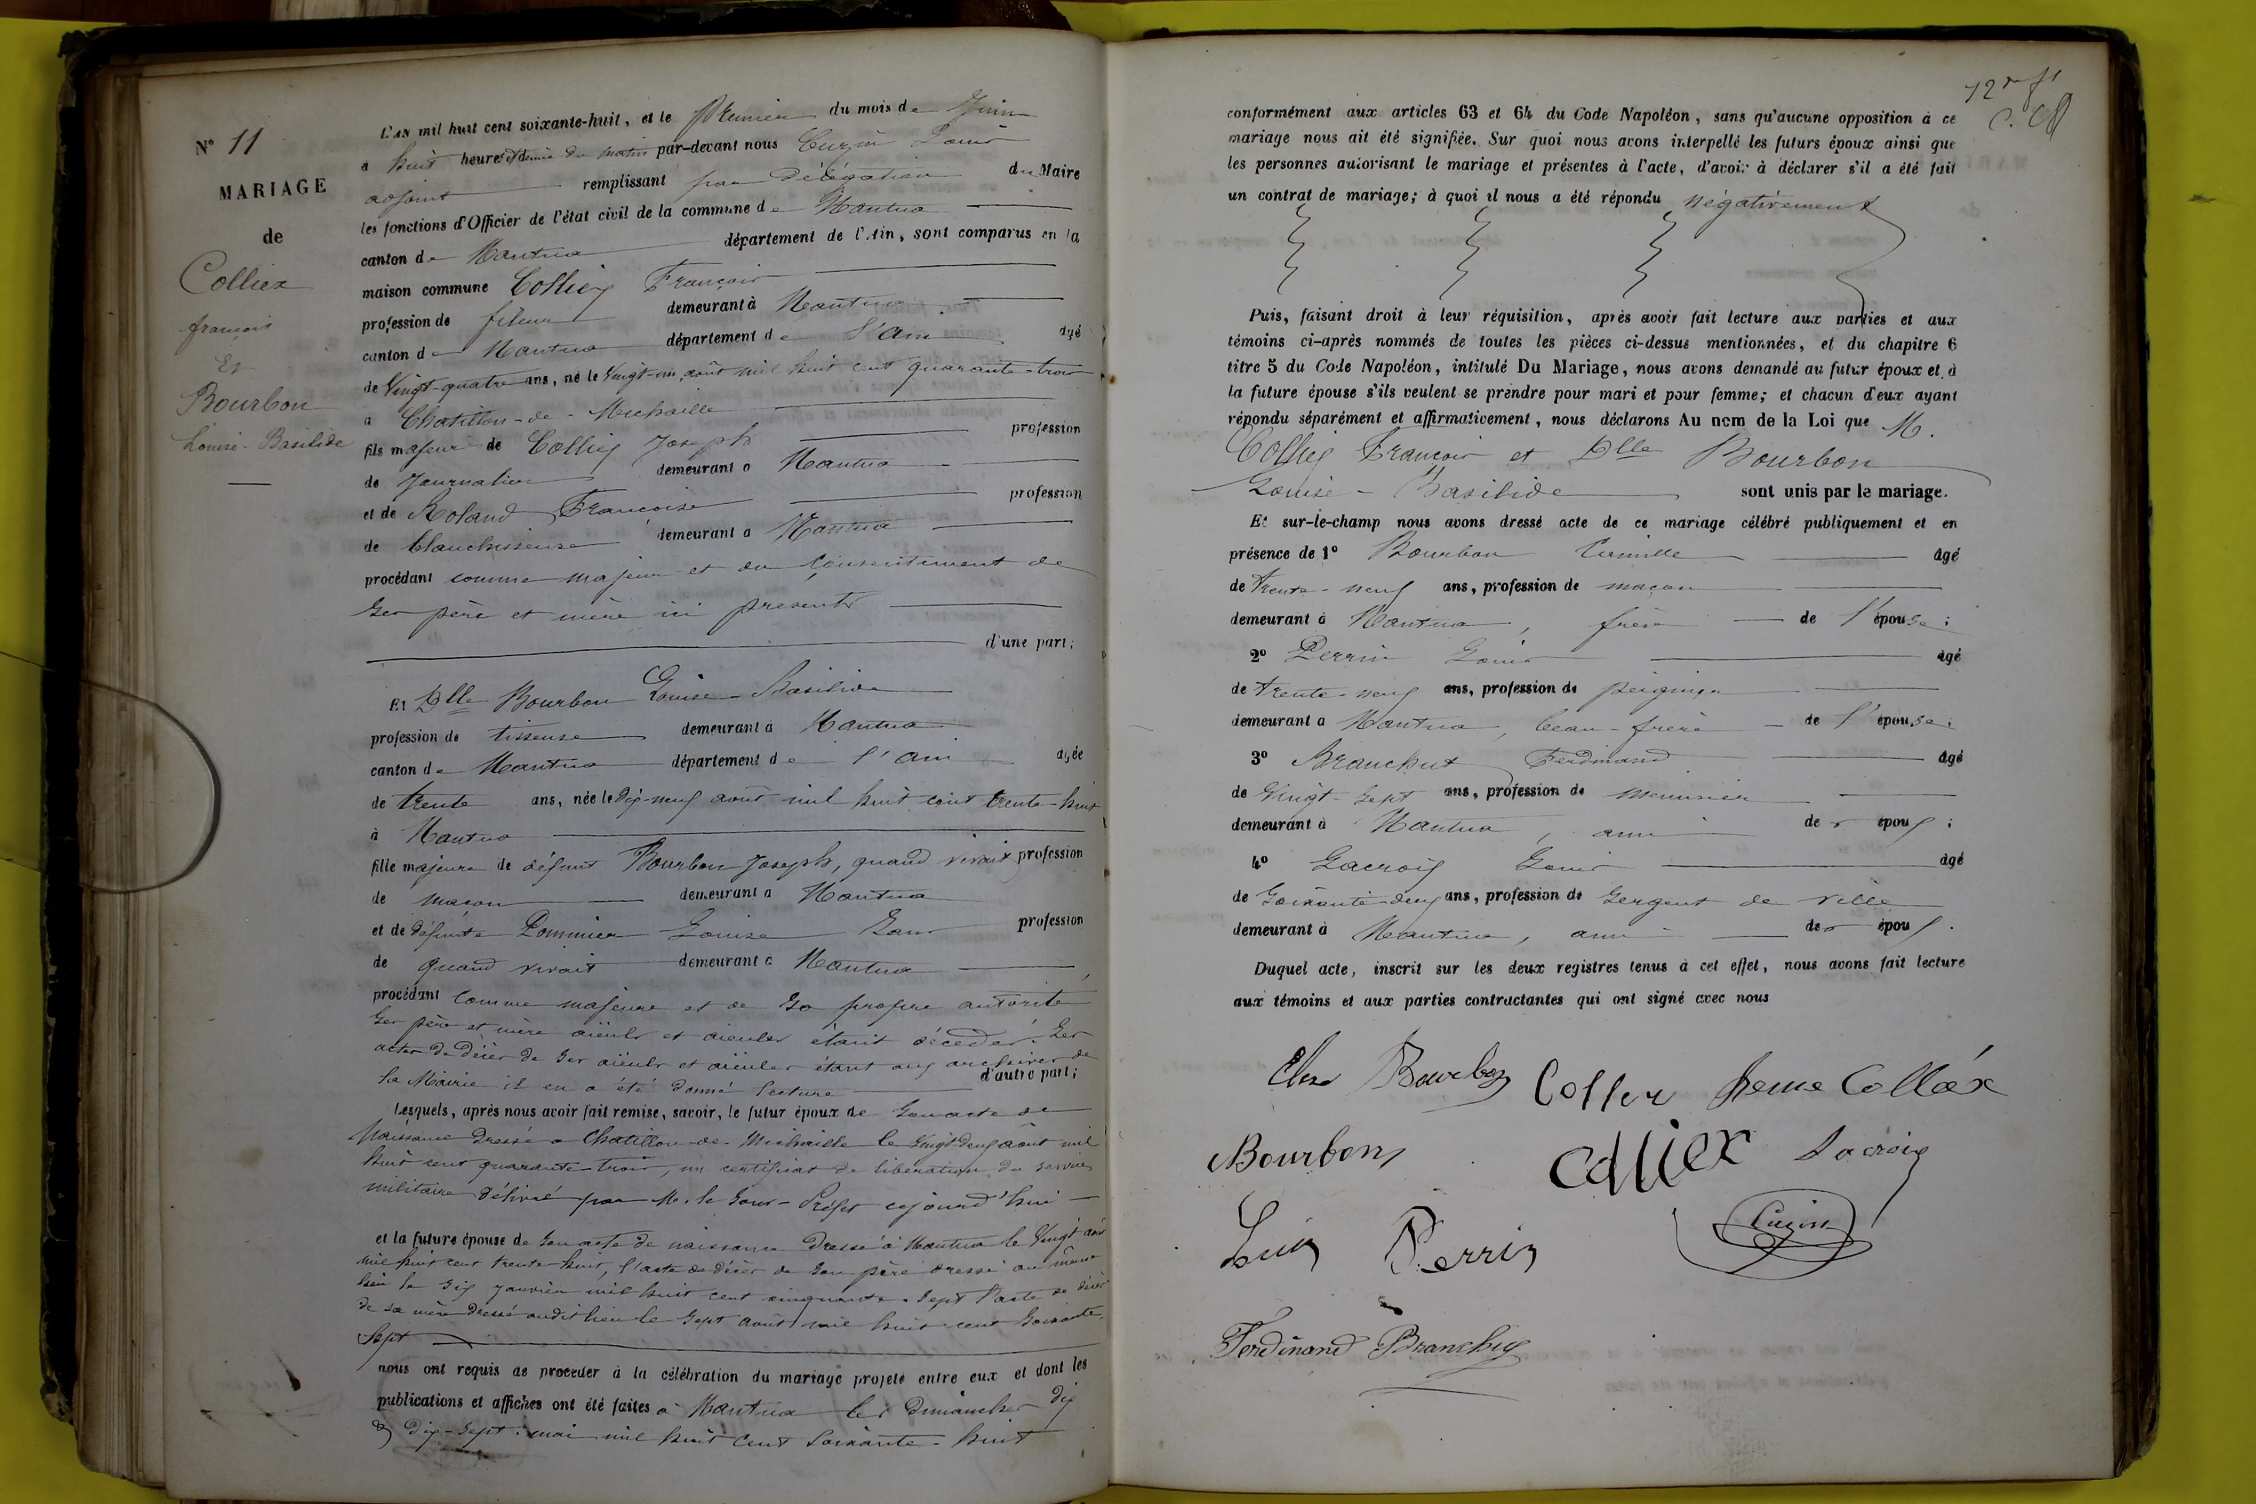 N° 11
MARIAGE
de
Colliex
françois
Et
Bourbon
Louise-Basilide
L'AN mil huit cent soixante-huit, et le Premier du mois de Juin
à huit heures et demie du matin par-devant nous Cuzin Louis
adjoint remplissant par Délégation du Maire
les fonctions d'Officier de l'état civil de la commune de Nantua
canton de Nantua département de l'Ain, sont comparus en la
maison commune Colliex François
profession de fileur demeurant à Nantua
canton de Nantua département de l'Ain âgé
de Vingt-quatre ans, né le Vingt-un août mil huit cent quarante-trois
à Chatillon-de-Michaille
fils majeur de Colliex Joseph profession
de Journalier demeurant à Nantua
et de Roland Françoise profession
de blanchisseuse demeurant à Nantua
procédant comme majeur et du consentement de
ses père et mère ici présents
d'une part;
Et Dlle Bourbon Louise-Basilide
profession de tisseuse demeurant à Nantua
canton de Nantua département de l'Ain âgée
de trente ans, née le dix-neuf août mil huit cent trente-huit
à Nantua
fille majeure de défunt Bourbon Joseph, quand vivait profession
de maçon demeurant à Nantua
et de défunte Pommier Louise Sans profession
de quand vivait demeurant à Nantua
procédant comme majeure et de sa propre autorité
ses père et mère aïeuls et aïeules étant décédés. Les
actes de décès de ses aïeuls et aïeules étant aux archives de
la Mairie il en a été donné lecture d'autre part;
Lesquels, après nous avoir fait remise, savoir, le futur époux de son acte de
Naissance dressé à Chatillon-de-Michaille le vingt-deux août mil
huit cent quarante-trois, un certificat de libération du service
militaire délivré par M. le Sous-Préfet cejourd'hui
et la future épouse de son acte de naissance dressé à Nantua le Vingt août
mil huit cent trente huit, l'acte de décès de son père dressé au même
lieu le dix janvier mil huit cent cinquante-sept l'acte de décès
de sa mère dressé audit lieu le sept août mil huit cent soixante
sept
nous ont requis de procéder à la célébration du mariage projeté entre eux et dont les
publications et affiches ont été faites à Nantua les Dimanches dix
& dix-sept mai mil huit cent soixante-huit
conformément aux articles 63 et 64 du Code Napoléon, sans qu'aucune opposition à ce
mariage nous ait été signifiée. Sur quoi nous avons interpellé les futurs époux ainsi que
les personnes autorisant le mariage et présentes à l'acte, d'avoir à déclarer s'il a été fait
un contrat de mariage; à quoi il nous a été répondu négativement
Puis, faisant droit à leur réquisition, après avoir fait lecture aux parties et aux
témoins ci-après nommés de toutes les pièces ci-dessus mentionnées, et du chapitre 6
titre 5 du Code Napoléon, intitulé Du Mariage, nous avons demandé au futur époux et à
la future épouse s'ils veulent se prendre pour mari et pour femme; et chacun d'eux ayant
répondu séparément et affirmativement, nous déclarons Au nom de la Loi que M.
Colliex François et Dlle Bourbon
Louise-Basilide sont unis par le mariage.
Et sur-le-champ nous avons dressé acte de ce mariage célébré publiquement et en
présence de 1° Bourbon Camille âgé
de trente-neuf ans, profession de maçon
demeurant à Nantua, frère de l'épouse;
2° Perrin Louis âgé
de trente-neuf ans, profession de peigneur
demeurant à Nantua, beau-frère de l'épouse;
3° Branchut Ferdinand âgé
de Vingt-sept ans, profession de menuisier
demeurant à Nantua, ami des époux;
4° Lacroix Louis âgé
de Soixante-deux ans, profession de Sergent de ville
demeurant à Nantua, ami des époux.
Duquel acte, inscrit sur les deux registres tenus à cet effet, nous avons fait lecture
aux témoins et aux parties contractantes qui ont signé avec nous
Bourbon Feme Colléx
Bourbon Colliex Lacroix
Perrin Cuzin
Ferdinand